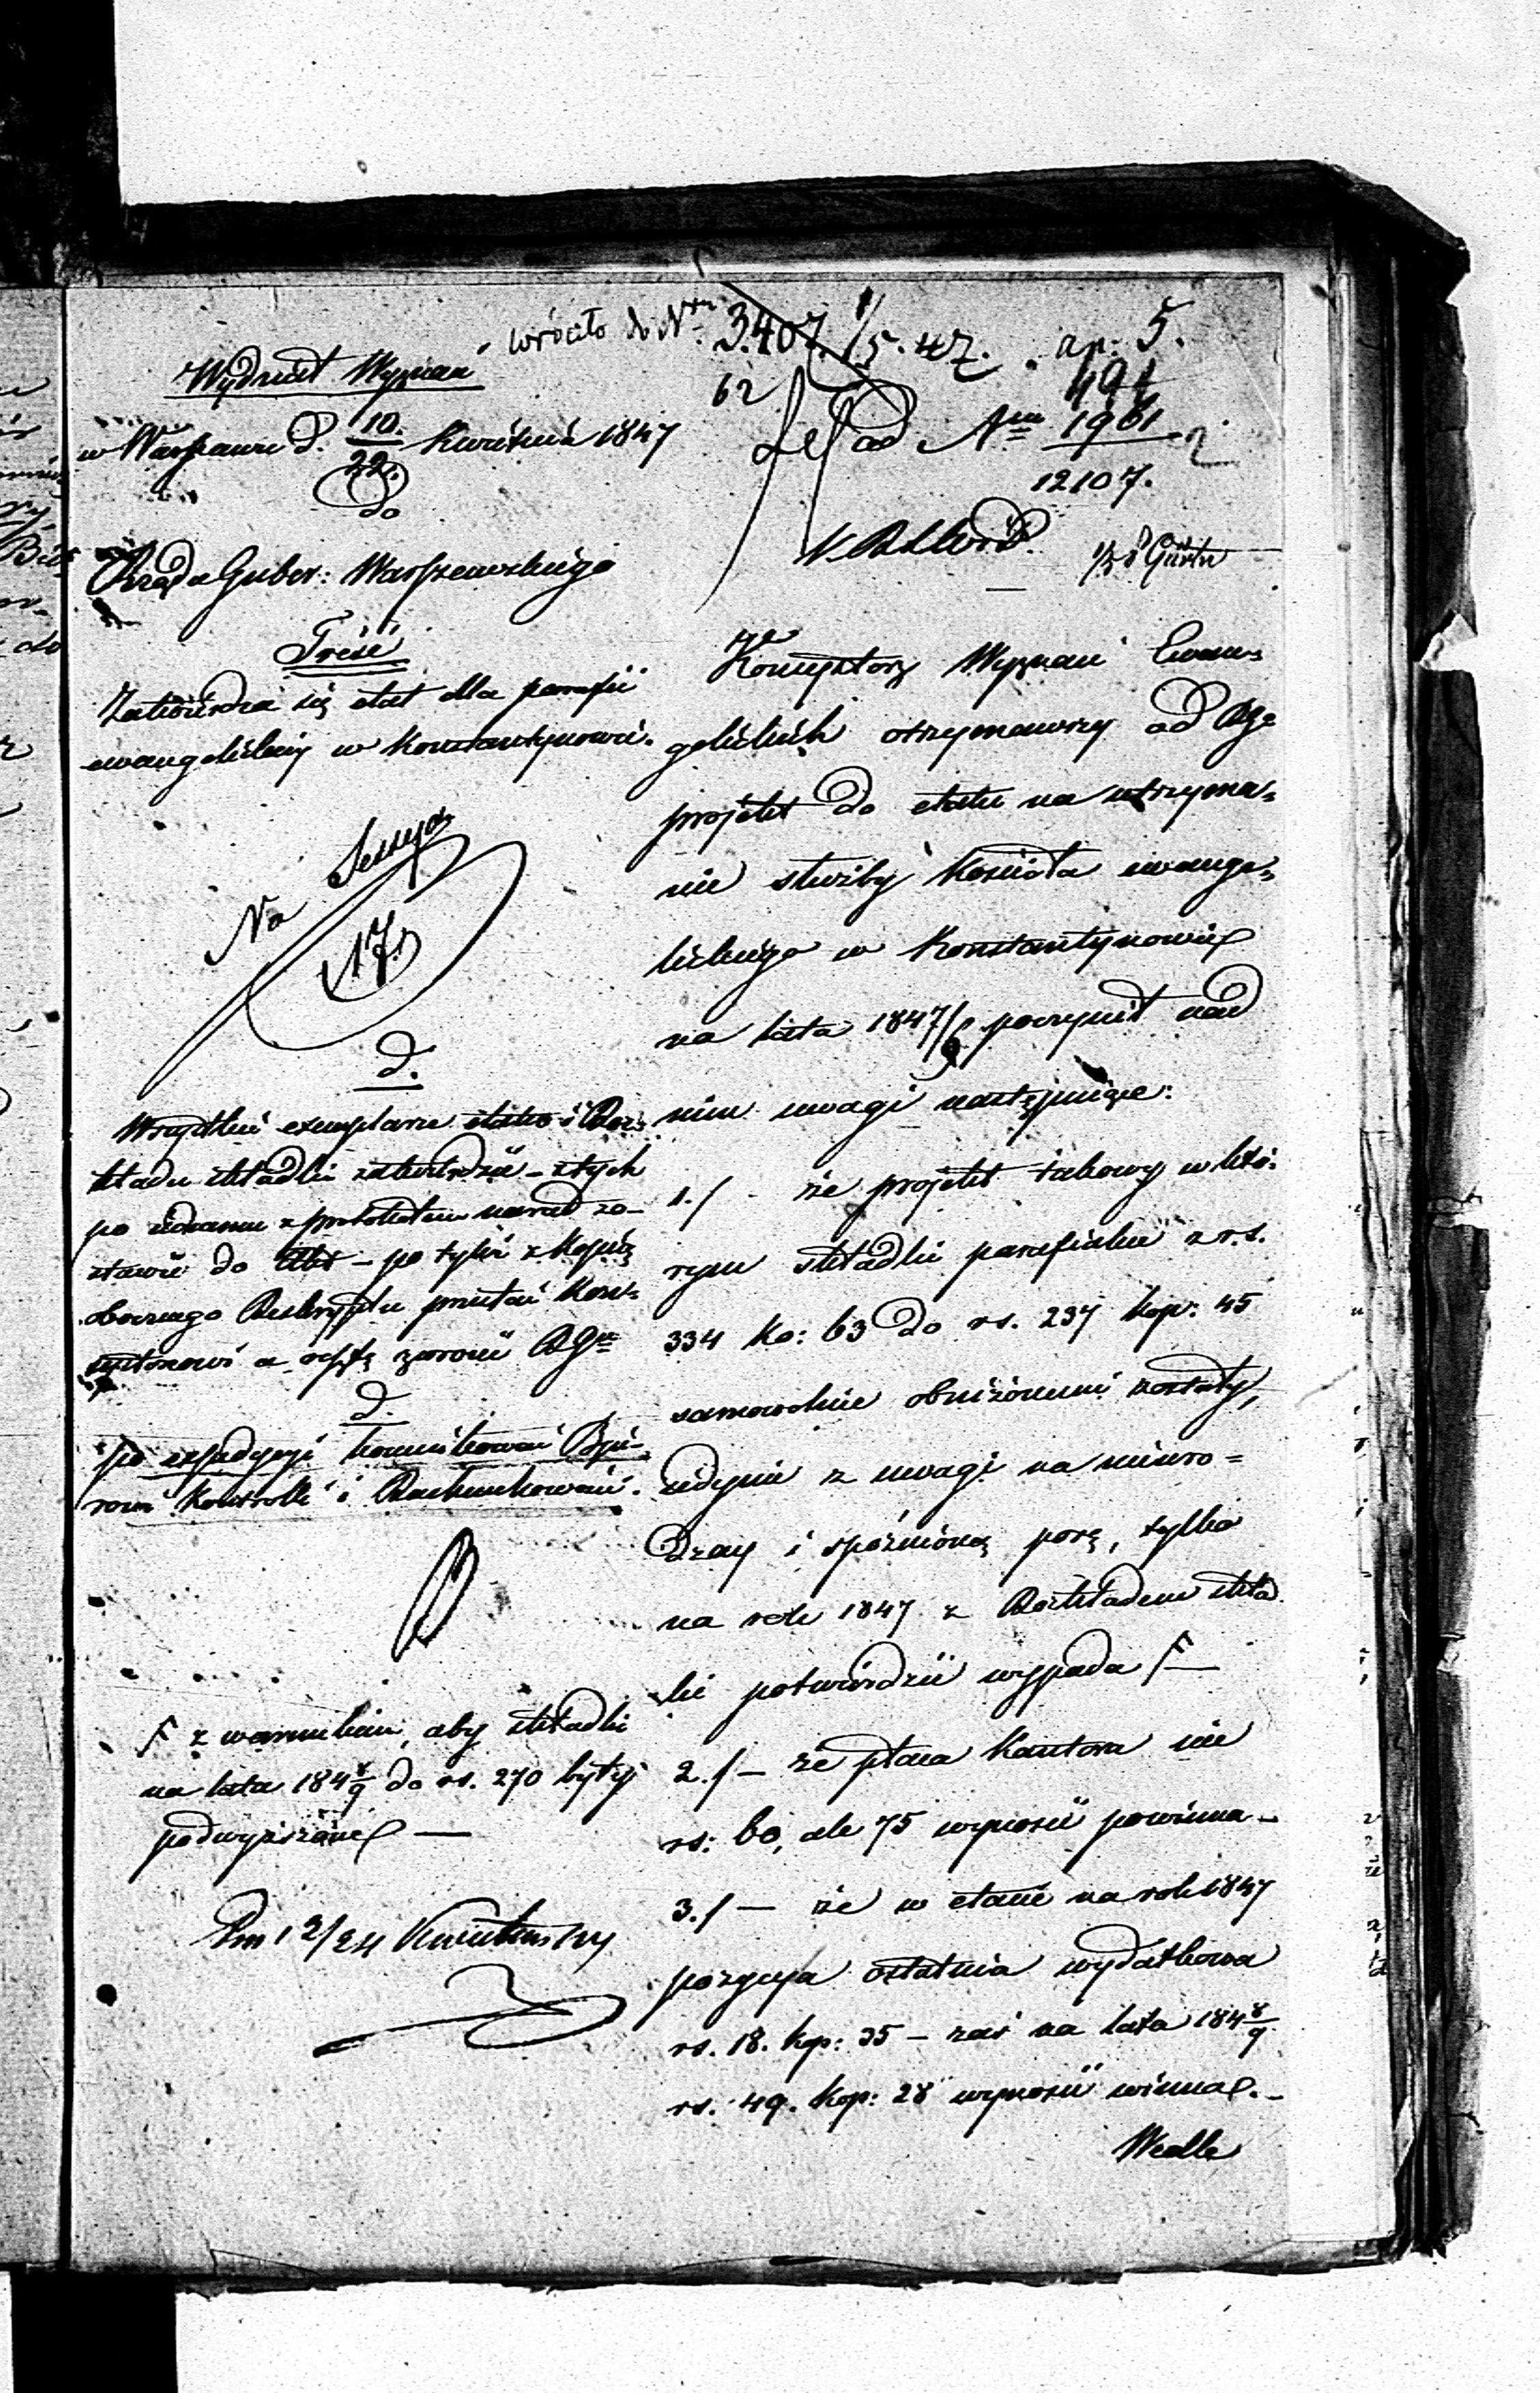 wróciło do Nru 3.407. 1/5. 47. ap. 5.
Wydział Wyznań
62
491
w Warszawie d. 10./22. Kwietnia 1847
ad Num 1961
12107.
do
Rządu Guber: Warszawskiego
Treść
Zatwierdza się etat dla parafii
ewangelickiej w Konstantynowie.
Na Sessyą
17.
d.
Wszystkie exemplarze etatu i Roz-
kładu składki zatwierdzić – z tych
po jednemu z protokołem narad zo-
stawić do Akt – po tyleż z kopią
obecnego Reskryptu przesłać Kon-
systorzowi a resztę zwrócić RGu
d.
po expedycyi komunikować Biu-
rom Kontrolli i Rachunkowości.
F z warunkiem, aby składki
na lata 184 8/9 do rs. 270 były
podwyższone —
12/24 Kwietnia
Konsystorz Wyznań Ewan-
gelickich otrzymawszy od RGo
projekt do etatu na utrzyma-
nie służby Kościoła ewange-
lickiego w Konstantynowie
na lata 1847/9 poczynił nad
nim uwagi następujące:
1./ – że projekt takowy w któ-
rym składki parafialne z rs.
334 ko: 63 do rs. 237 kop: 45
samowolnie obniżonemi zostały,
jedynie z uwagi na nieuro-
dzay i spóźnioną porę, tylko
na rok 1847 z Rozkładem skła-
dki potwierdzić wypada F —
2./ – że płaca Kantora nie
rs: 60, ale 75 wynosić powinna –
3./ – że w etacie na rok 1847
pozycya ostatnia wydatkowa
rs. 18. kop: 35 – zaś na lata 184 8/9
rs. 49. kop: 28 wynosić winna. –
Wedle